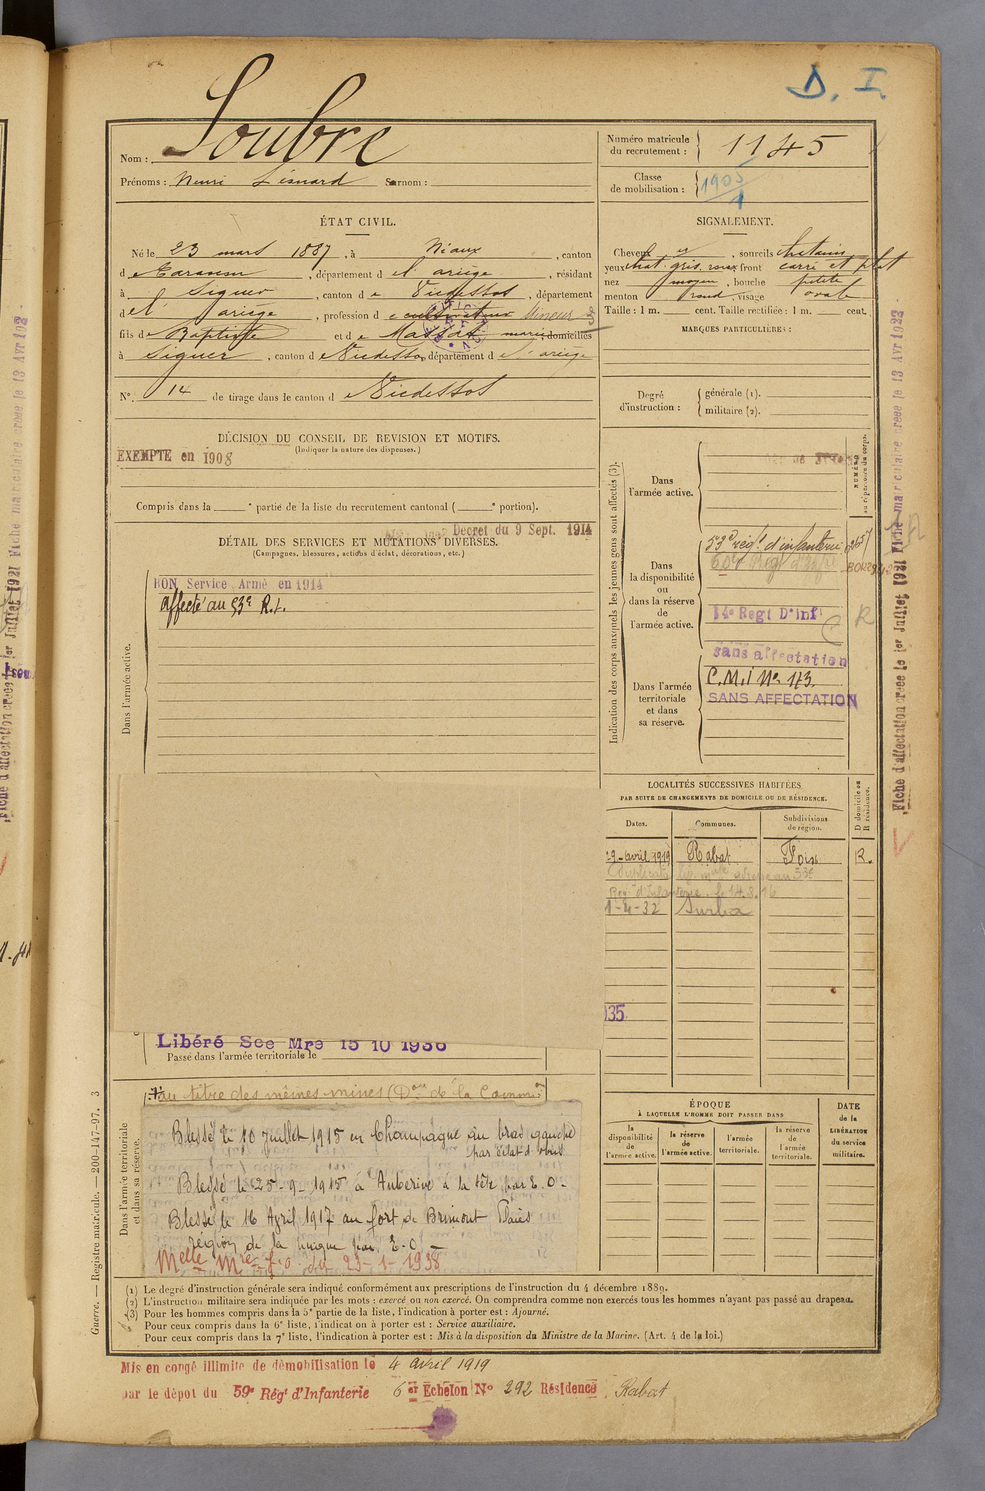 D. I.
Nom : Soubre
Prénoms : Henri Léonard Surnom :
Numéro matricule du recrutement : 1145
Classe de mobilisation : 1905
1
ÉTAT CIVIL.
Né le 23 mars 1887, à Niaux, canton
d e Tarascon, département d e l'ariège, résidant
à Siguer, canton d e Vicdessos, département
d e l'ariège, profession d e cultivateur Mineur
fils de Baptiste et d e Massat marie domiciliés
à Siguer, canton d e Vicdessos, département d e l'ariège
N° 14 de tirage dans le canton d e Vicdessos
SIGNALEMENT.
Cheveux et, sourcils chatains
yeux chat. gris. roux front carré et plat
nez moyen, bouche petite
menton rond, visage ovale
Taille : 1 m. cent. Taille rectifiée : 1 m. cent.
MARQUES PARTICULIÈRES :
Degré d'instruction : générale (1).
militaire (2).
DÉCISION DU CONSEIL DE REVISION ET MOTIFS.
(Indiquer la nature des dispenses.)
EXEMPTE en 1908
Compris dans la ° partie de la liste du recrutement cantonal ( ° portion).
Decret du 9 Sept. 1914
DÉTAIL DES SERVICES ET MUTATIONS DIVERSES.
(Campagnes, blessures, actions d'éclat, décorations, etc.)
Dans l'armée active.
BON Service Armé en 1914
affecté au 53e R.I.
Indication des corps auxquels les jeunes gens sont affectés (3).
NUMÉRO au répertoire du corps.
Dans l'armée active.
Dans la disponibilité ou dans la réserve de l'armée active.
53e régt d'infanterie
14e Regt D'inf
R
sans affectation
Dans l'armée territoriale et dans sa réserve.
C.M.I No 173.
SANS AFFECTATION
LOCALITÉS SUCCESSIVES HABITÉES
PAR SUITE DE CHANGEMENTS DE DOMICILE OU DE RÉSIDENCE.
Dates. Communes. Subdivisions de région. D domicile ou R résidence.
29-avril 1919 Rabat Foix R.
Regt d'Infanterie le 14.3.16
1-4-32 Surba
935
Libéré Sce Mre 15 10 1936
Passé dans l'armée territoriale le
au titre des mêmes mines (Don de la Comm.
Dans l'armée territoriale et dans sa réserve.
Blessé le 10 juillet 1915 en Champagne au bras gauche
par éclat d'obus
Blessé le 25-9-1915 à Auberive à la tête par E.O-
Blessé le 16 Avril 1917 au fort de Brimont Plaies
région de la nuque par E.O-
Melle Mre J.O du 23-1-1938
ÉPOQUE
À LAQUELLE L'HOMME DOIT PASSER DANS
la disponibilité de l'armée active. la réserve de l'armée active. l'armée territoriale. la réserve de l'armée territoriale.
DATE de la LIBÉRATION du service militaire.
(1) Le degré d'instruction générale sera indiqué conformément aux prescriptions de l'instruction du 4 décembre 1889.
(2) L'instruction militaire sera indiquée par les mots : exercé ou non exercé. On comprendra comme non exercés tous les hommes n'ayant pas passé au drapeau.
(3) Pour les hommes compris dans la 5e partie de la liste, l'indication à porter est : Ajourné.
Pour ceux compris dans la 6e liste, l'indication à porter est : Service auxiliaire.
Pour ceux compris dans la 7e liste, l'indication à porter est : Mis à la disposition du Ministre de la Marine. (Art. 4 de la loi.)
Mis en congé illimité de démobilisation le 4 avril 1919
par le dépot du 59e Régt d'Infanterie 6er Echelon No 292 Résidence Rabat
Guerre. — Registre matricule. — 200-147-97. 3
Fiche d'affectation créée le 1er Juillet 1921 Fiche matriculaire créée le 13 Avr 1932